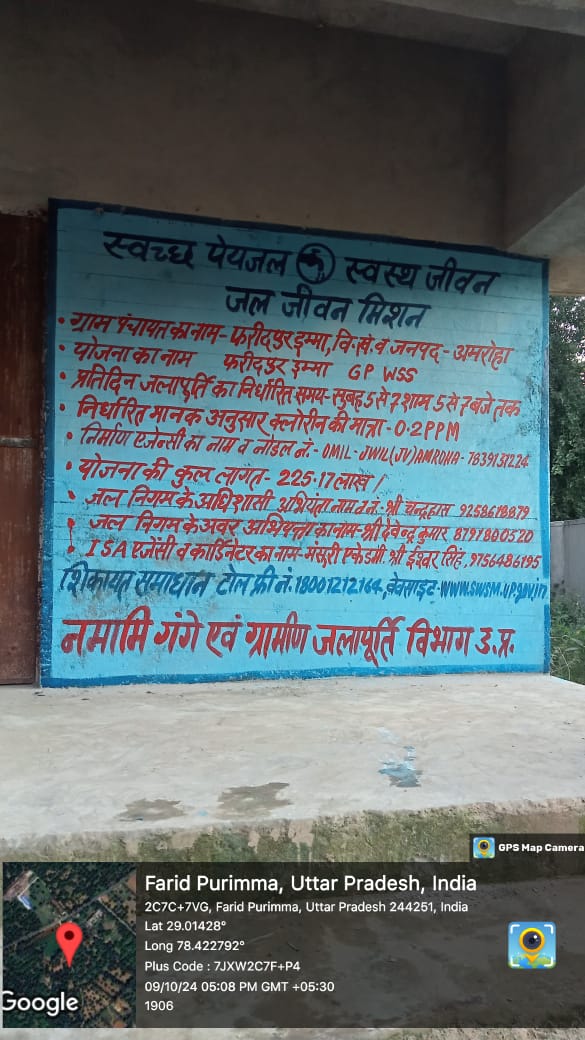 स्वच्छ पेयजल स्वस्थ जीवन
जल जीवन मिशन
• ग्राम पंचायत का नाम- फरीदपुर इम्मा, वि.खं. व जनपद - अमरोहा
• योजना का नाम फरीदपुर इम्मा GP WSS
• प्रतिदिन जलापूर्ति का निर्धारित समय- सुबह 5 से 7 शाम 5 से 7 बजे तक
• निर्धारित मानक अनुसार क्लोरीन की मात्रा - 0.2 PPM
• निर्माण एजेन्सी का नाम व नोडल नं.- OMIL-JWIL(JV) AMROHA- 7839131224
• योजना की कुल लागत- 225.17 लाख।
• जल निगम के अधिशासी अभियंता नाम व नं.- श्री चन्द्रहास 9258618879
• जल निगम के अवर अभियन्ता का नाम- श्री देवेन्द्र कुमार 8791800520
• ISA एजेंसी व कार्डिनेटर का नाम- मसूरी एकेडमी श्री ईश्वर सिंह, 9756486195
शिकायत समाधान टोल फ्री नं. 18001212164, वेबसाइट- www.swsm.up.gov.in
नमामि गंगे एवं ग्रामीण जलापूर्ति विभाग उ.प्र.
GPS Map Camera
Farid Purimma, Uttar Pradesh, India
2C7C+7VG, Farid Purimma, Uttar Pradesh 244251, India
Lat 29.01428°
Long 78.422792°
Plus Code : 7JXW2C7F+P4
09/10/24 05:08 PM GMT +05:30
1906
Google